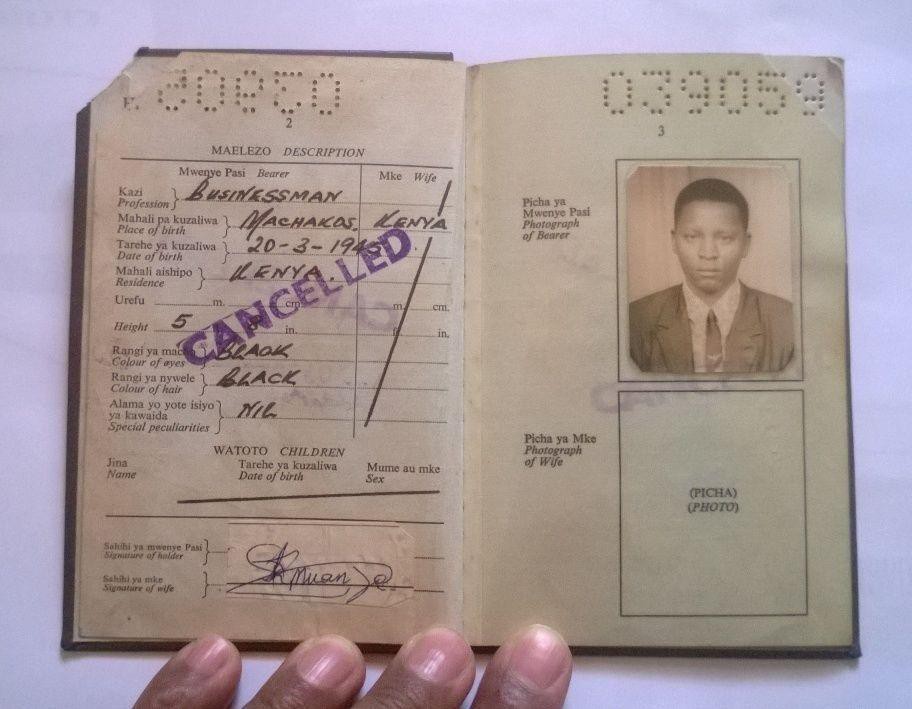 039059
2
MAELEZO DESCRIPTION
Mwenye Pasi Bearer
Mke Wife
Kazi
Profession
BUSINESSMAN
Mahali pa kuzaliwa
Place of birth
MACHAKOS, KENYA
Tarehe ya kuzaliwa
Date of birth
20-3-194
Mahali aishipo
Residence
KENYA.
Urefu m. cm. m. cm.
Height 5 in. in.
CANCELLED
Rangi ya
Colour of eyes
BLACK
Rangi ya nywele
Colour of hair
BLACK
Alama yo yote isiyo
ya kawaida
Special peculiarities
NIL
WATOTO CHILDREN
Jina
Name
Tarehe ya kuzaliwa
Date of birth
Mume au mke
Sex
Sahihi ya mwenye Pasi
Signature of holder
Sahihi ya mke
Signature of wife
039059
3
Picha ya
Mwenye Pasi
Photograph
of Bearer
Picha ya Mke
Photograph
of Wife
(PICHA)
(PHOTO)